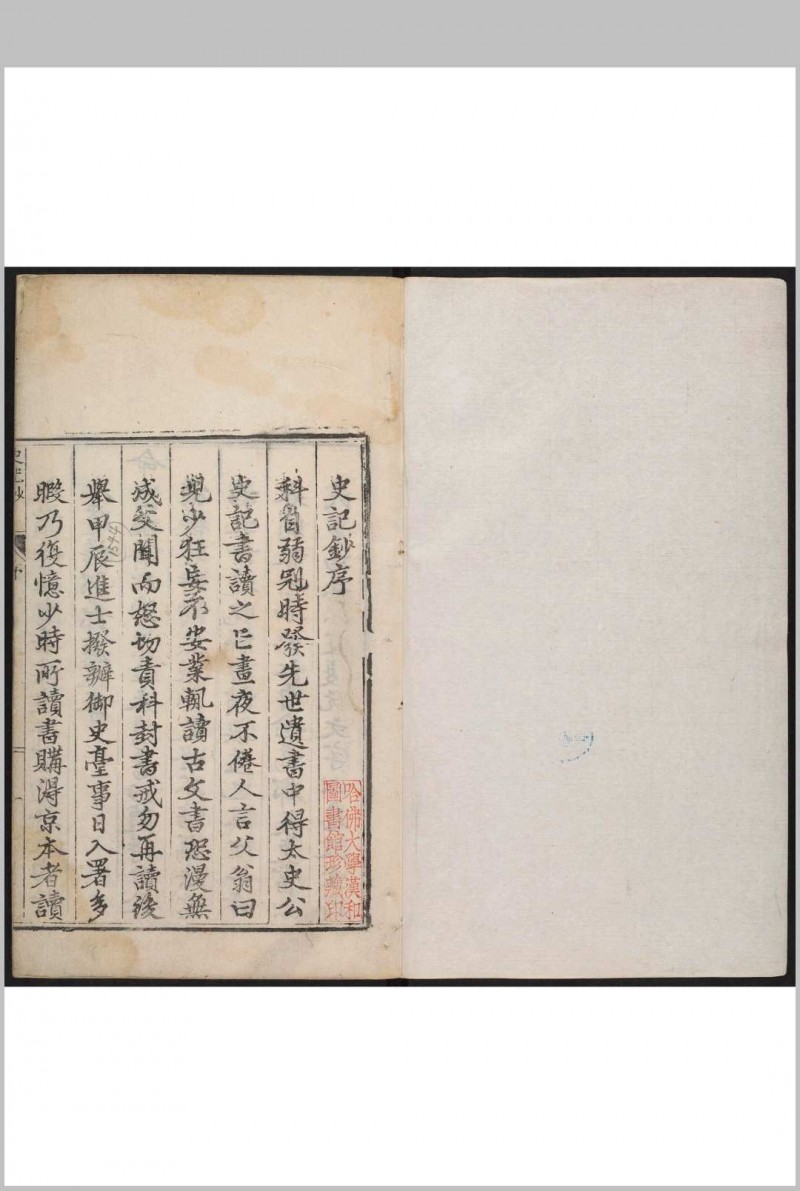 史記鈔序
科自弱冠時發先世遺書中得太史公
史記書讀之㤀晝夜不倦人言父翁曰
兒少狂妄不安業輒讀古文書恐漫無
成父聞而怒切責科封書戒勿再讀後
舉甲辰進士撥辦御史臺事日入署多
暇乃復憶少時所讀書購淂京本者讀
史記鈔
序
一
哈佛大學漢和
圖書館珍藏印